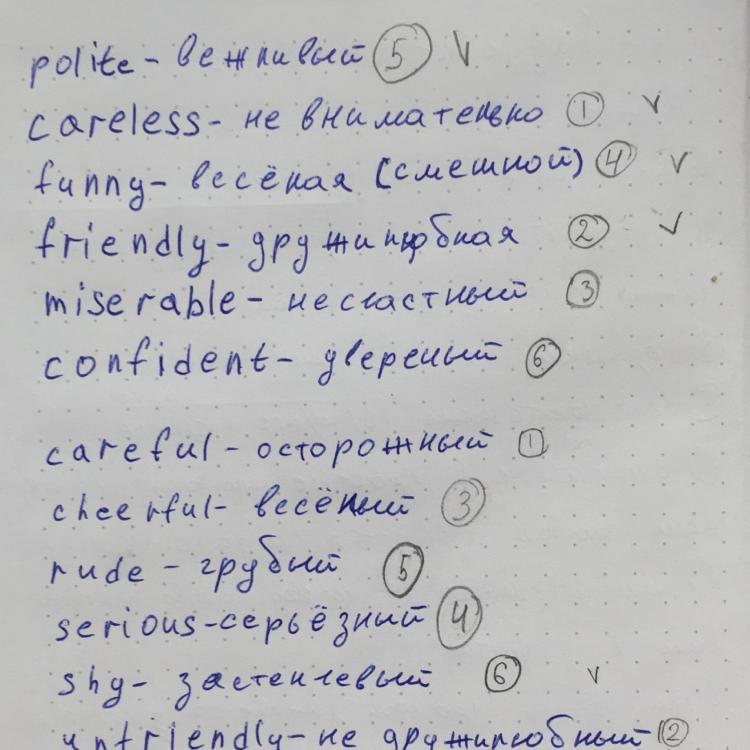 polite - вежливый ⑤ ✓
careless - не внимательно ① ✓
funny - весёлая (смешной) ④ ✓
friendly - дружилюбная ② ✓
miserable - несчастный ③
confident - увереный ⑥
careful - осторожный ①
cheerful - весёлый ③
rude - грубый ⑤
serious - серьёзный ④
shy - застенчевый ⑥ ✓
unfriendly - не дружилюбный ②